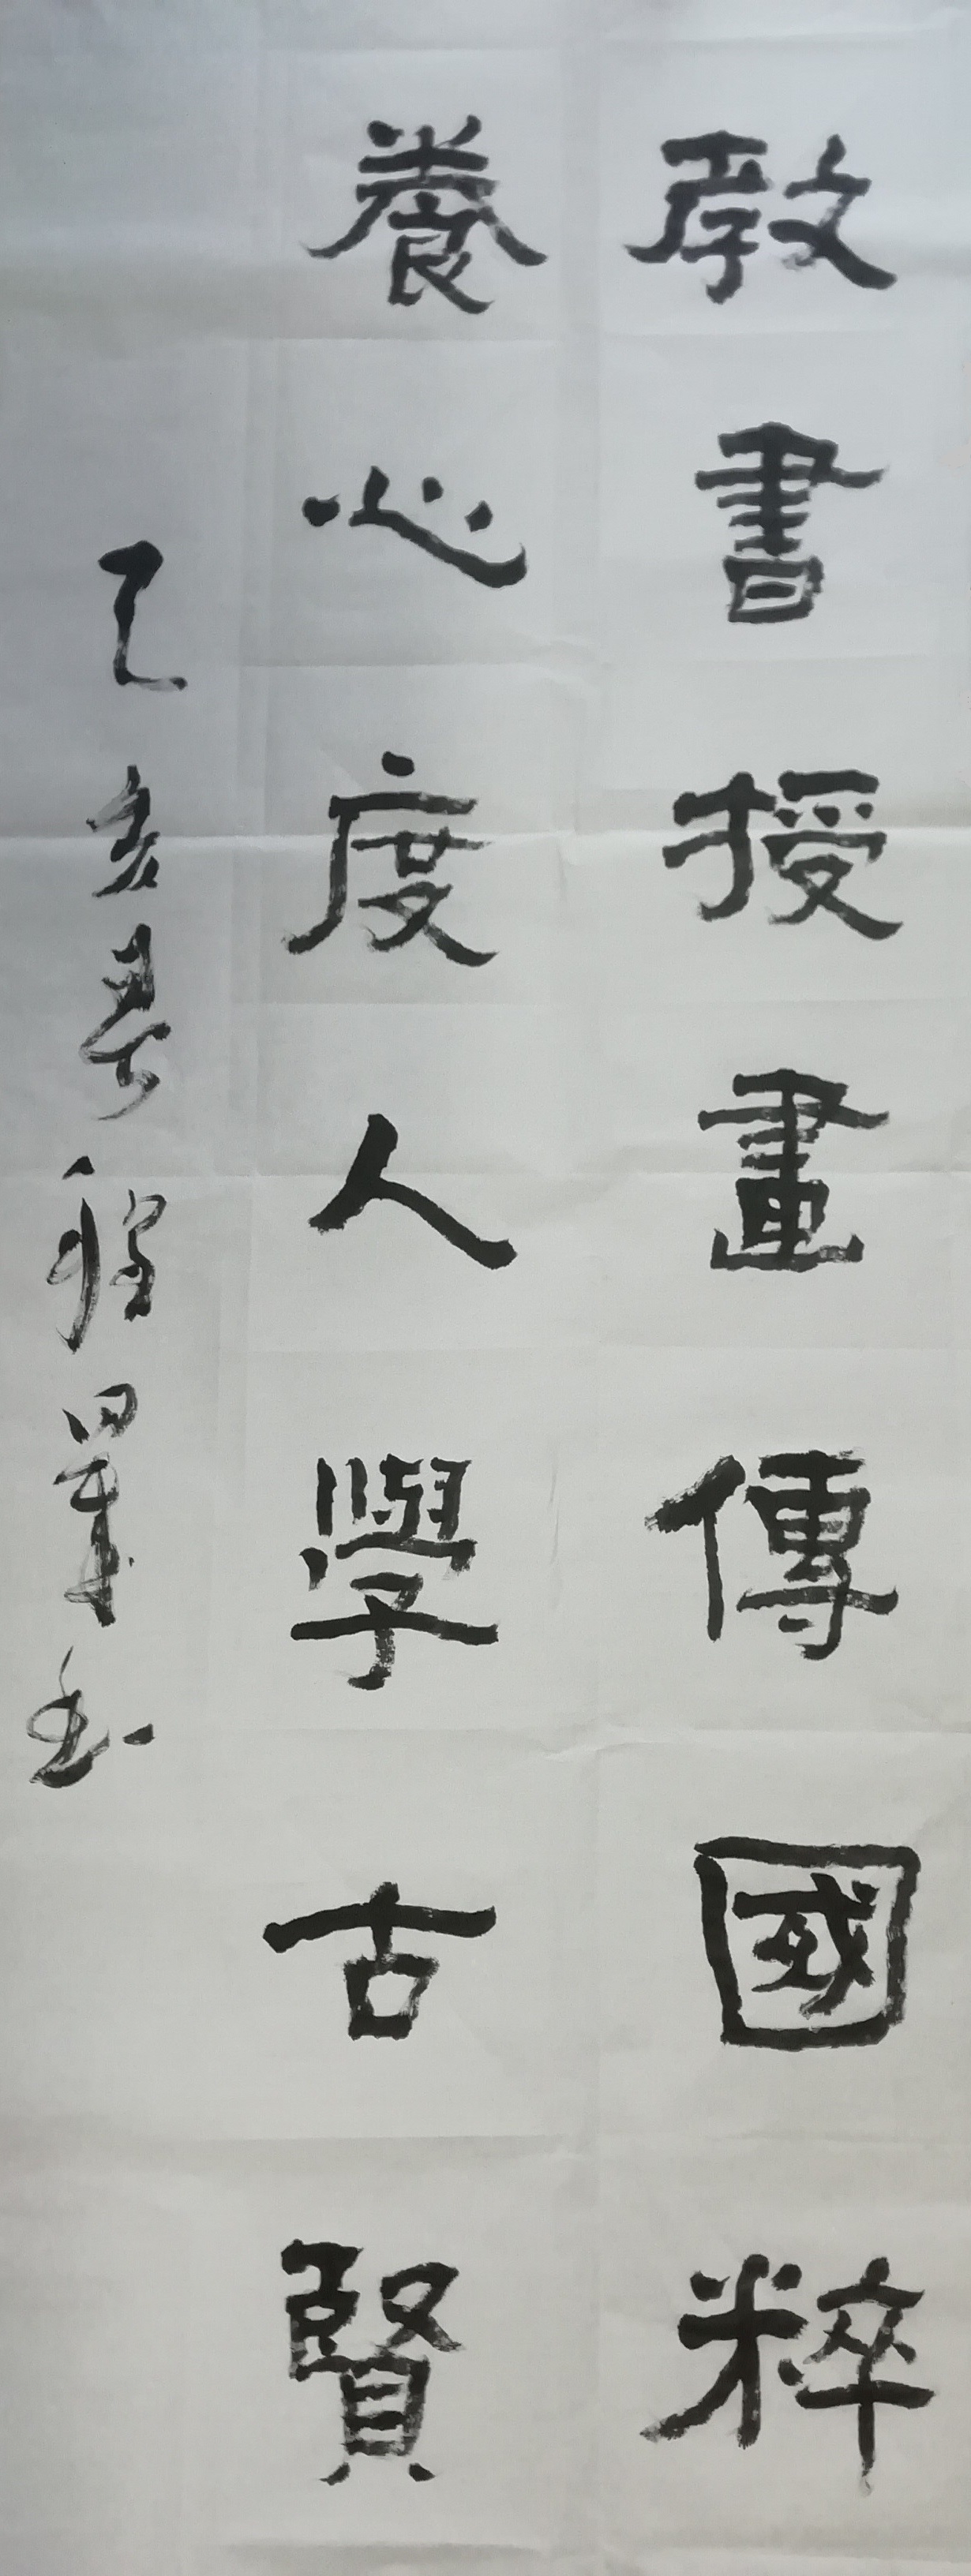 教書授畫傳國粹
養心度人學古賢
己亥春程畢書